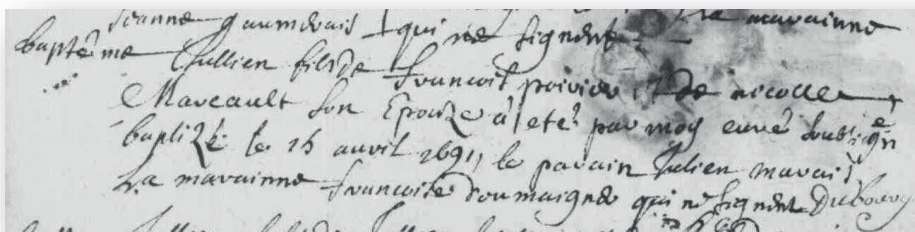 Jeanne gaumerais qui ne signent la marainne
baptême Jullien fils de francois poirier et de nicolle
Mareault son Epouze à eté par moy curé soubsigné
baptizé le 15 avril 1691, le parain Julien marais
La maraine francoise doumaigne qui ne signent Dubourg